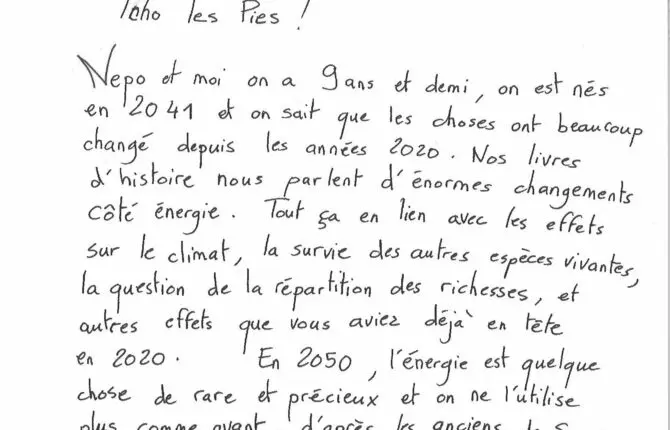 Tcho les Pies !
Nepo et moi on a 9 ans et demi, on est nés
en 2041 et on sait que les choses ont beaucoup
changé depuis les années 2020. Nos livres
d'histoire nous parlent d'énormes changements
côté énergie. Tout ça en lien avec les effets
sur le climat, la survie des autres espèces vivantes,
la question de la répartition des richesses, et
autres effets que vous aviez déjà en tête
en 2020. En 2050, l'énergie est quelque
chose de rare et précieux et on ne l'utilise
plus comme avant, d'après les anciens